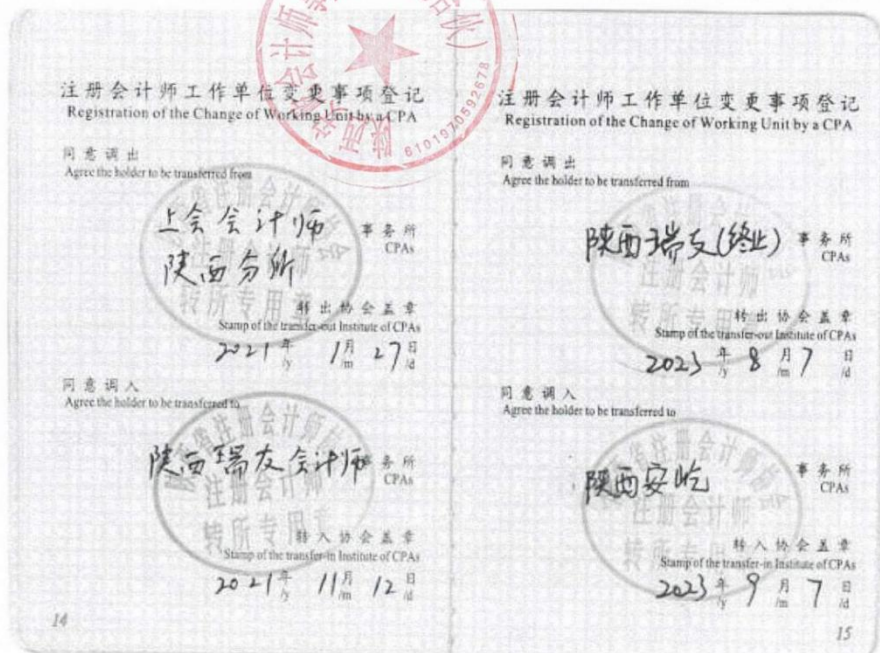 6101970592678
注册会计师工作单位变更事项登记
Registration of the Change of Working Unit by a CPA
同意调出
Agree the holder to be transferred from
上会会计师
陕西分所
事务所
CPAs
转出协会盖章
Stamp of the transfer-out Institute of CPAs
2021年 1月 27日
/y /m /d
同意调入
Agree the holder to be transferred to
陕西瑞友会计师 事务所
CPAs
注册会计师
转所专用章
转入协会盖章
Stamp of the transfer-in Institute of CPAs
2021年 11月 12日
/y /m /d
14
注册会计师工作单位变更事项登记
Registration of the Change of Working Unit by a CPA
同意调出
Agree the holder to be transferred from
陕西瑞友(终止) 事务所
CPAs
注册会计师
转出协会盖章
Stamp of the transfer-out Institute of CPAs
2023年 8月 7日
/y /m /d
同意调入
Agree the holder to be transferred to
陕西安屹 事务所
CPAs
注册会计师
转入协会盖章
Stamp of the transfer-in Institute of CPAs
2023年 9月 7日
/y /m /d
15